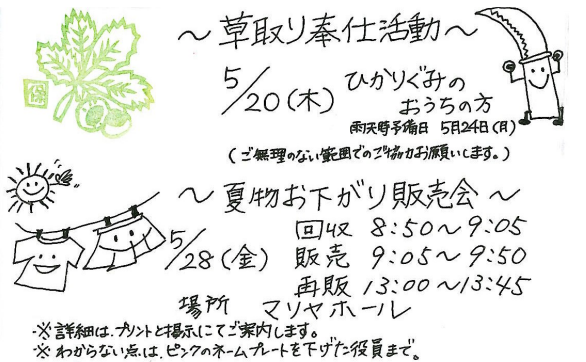 ～草取り奉仕活動～
保
5/20(木) ひかりぐみの
おうちの方
雨天時予備日 5月24日(月)
(ご無理のない範囲でのご協力お願いします。)
～夏物お下がり販売会～
5/28(金)
回収 8:50～9:05
販売 9:05～9:50
再販 13:00～13:45
場所 マリヤホール
※詳細は、プリントと掲示にてご案内します。
※わからない点は、ピンクのネームプレートを下げた役員まで。